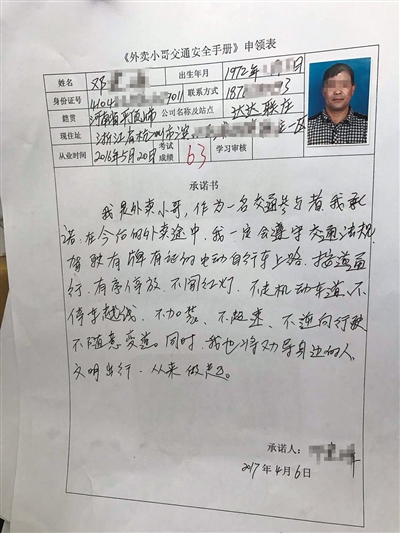 《外卖小哥交通安全手册》申领表
姓名 邓 出生年月 1972年
身份证号 4104 7011 联系方式 187 93
籍贯 河南省平顶山市 公司名称及站点 达达联庄
现住址 浙江省杭州市滨 一区
从业时间 2016年5月20日 考试成绩 63 学习审核
承诺书
我是外卖小哥，作为一名交通参与者，我承
诺：在今后的外卖途中，我一定会遵守交通法规，
驾驶有牌有证的电动自行车上路，按道通
行、有序停放、不闯红灯、不走机动车道、不
停车越线、不加装、不超速、不逆向行驶
不随意变道。同时，我也将劝导身边的人，
文明出行，从来做起。
承诺人：
2017年4月6日